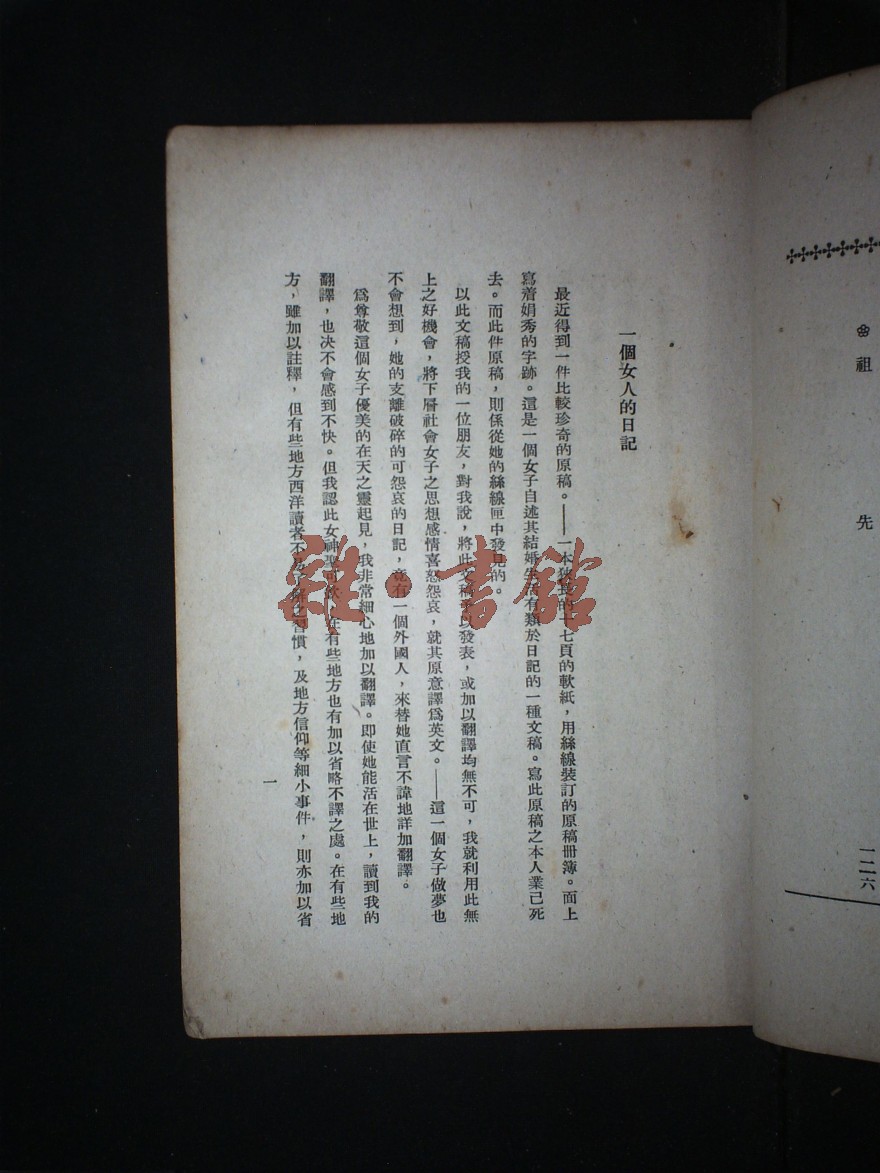 祖先
一二六
一個女人的日記
最近得到一件比較珍奇的原稿。——一本狹長的十七頁的軟紙，用絲線裝訂的原稿冊簿。面上
寫着娟秀的字跡。這是一個女子自述其結婚生活有類於日記的一種文稿。寫此原稿之本人業已死
去。而此件原稿，則係從她的絲線匣中發見的。
以此文稿授我的一位朋友，對我說，將此文稿予以發表，或加以翻譯均無不可，我就利用此無
上之好機會，將下層社會女子之思想感情喜怒怨哀，就其原意譯爲英文。——這一個女子做夢也
不會想到，她的支離破碎的可怨哀的日記，竟有一個外國人，來替她直言不諱地詳加翻譯。
爲尊敬這個女子優美的在天之靈起見，我非常細心地加以翻譯。即使她能活在世上，讀到我的
翻譯，也決不會感到不快。但我認此女神聖可 在有些地方也有加以省略不譯之處。在有些地
方，雖加以註釋，但有些地方西洋讀者不易了解之習慣，及地方信仰等細小事件，則亦加以省
一
雜·書館